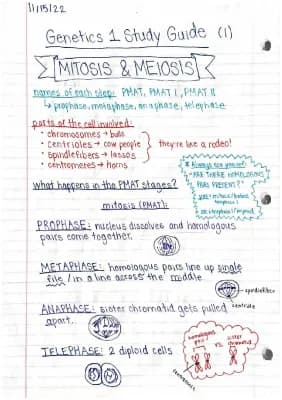 11/15/22
Genetics 1 Study Guide (1)
MITOSIS & MEIOSIS
names of each step: PMAT, PMAT I, PMAT II
↳ prophase, metaphase, anaphase, telephase
parts of the cell involved:
• chromosomes → bulls
• centrioles → cow people
• spindlefibers → lassos
• centromeres → horns
they're like a rodeo!
* Always ask yourself:
-ARE THERE HOMOLOGOUS
PAIRS PRESENT?"
what happens in the PMAT stages?
mitosis (PMAT):
PROPHASE: nucleus dissolves and homologous
pairs come together.
METAPHASE: homologous pairs line up single
file / in a line across the middle
spindlefiber
ANAPHASE: sister chromatid gets pulled
apart.
homologous
pair
vs.
sister
chromatid
TELEPHASE: 2 diploid cells